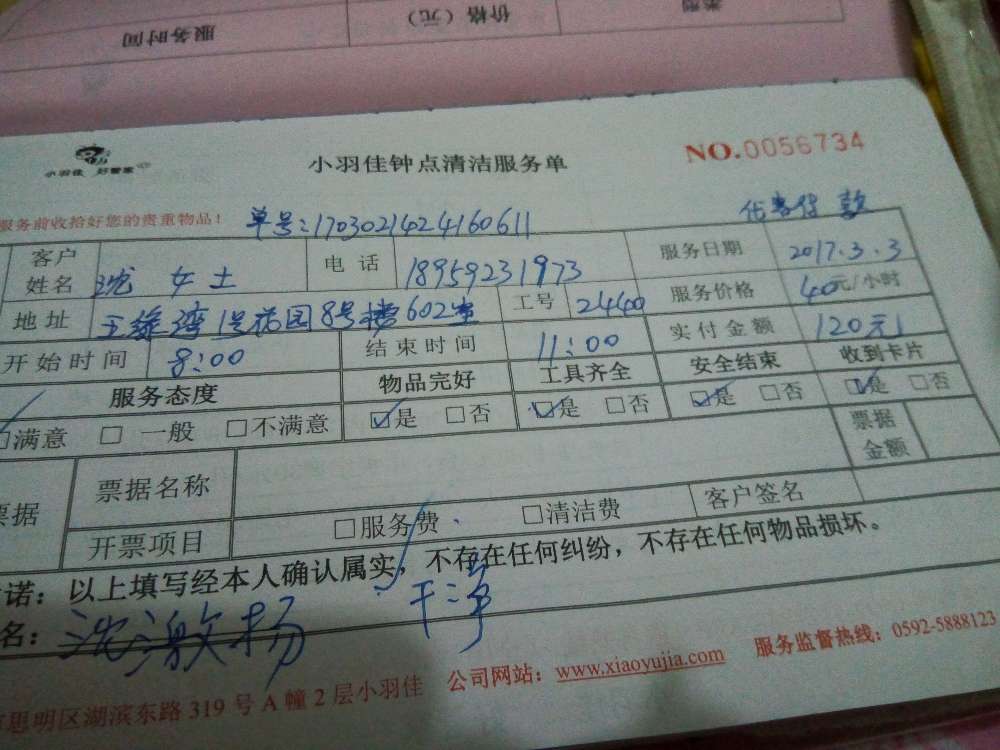 服务时间 价格（元） 类型
小羽佳 好管家
小羽佳钟点清洁服务单
NO.0056734
服务前收拾好您的贵重物品！
单号:1703021424160611
客户姓名 沈女士 电话 18959231973 服务日期 2017.3.3
地址 1号花园8号楼602室 工号 2440 服务价格 40元/小时
开始时间 8:00 结束时间 11:00 实付金额 120元
服务态度 物品完好 工具齐全 安全结束 收到卡片
☑满意 □一般 □不满意 ☑是 □否 ☑是 □否 ☑是 □否 ☑是 □否
票据 票据名称 票据金额
开票项目 □服务费 □清洁费 客户签名
诺：以上填写经本人确认属实，不存在任何纠纷，不存在任何物品损坏。
名：沈 杨 干净
思明区湖滨东路319号A幢2层小羽佳 公司网站：www.xiaoyujia.com 服务监督热线：0592-5888123